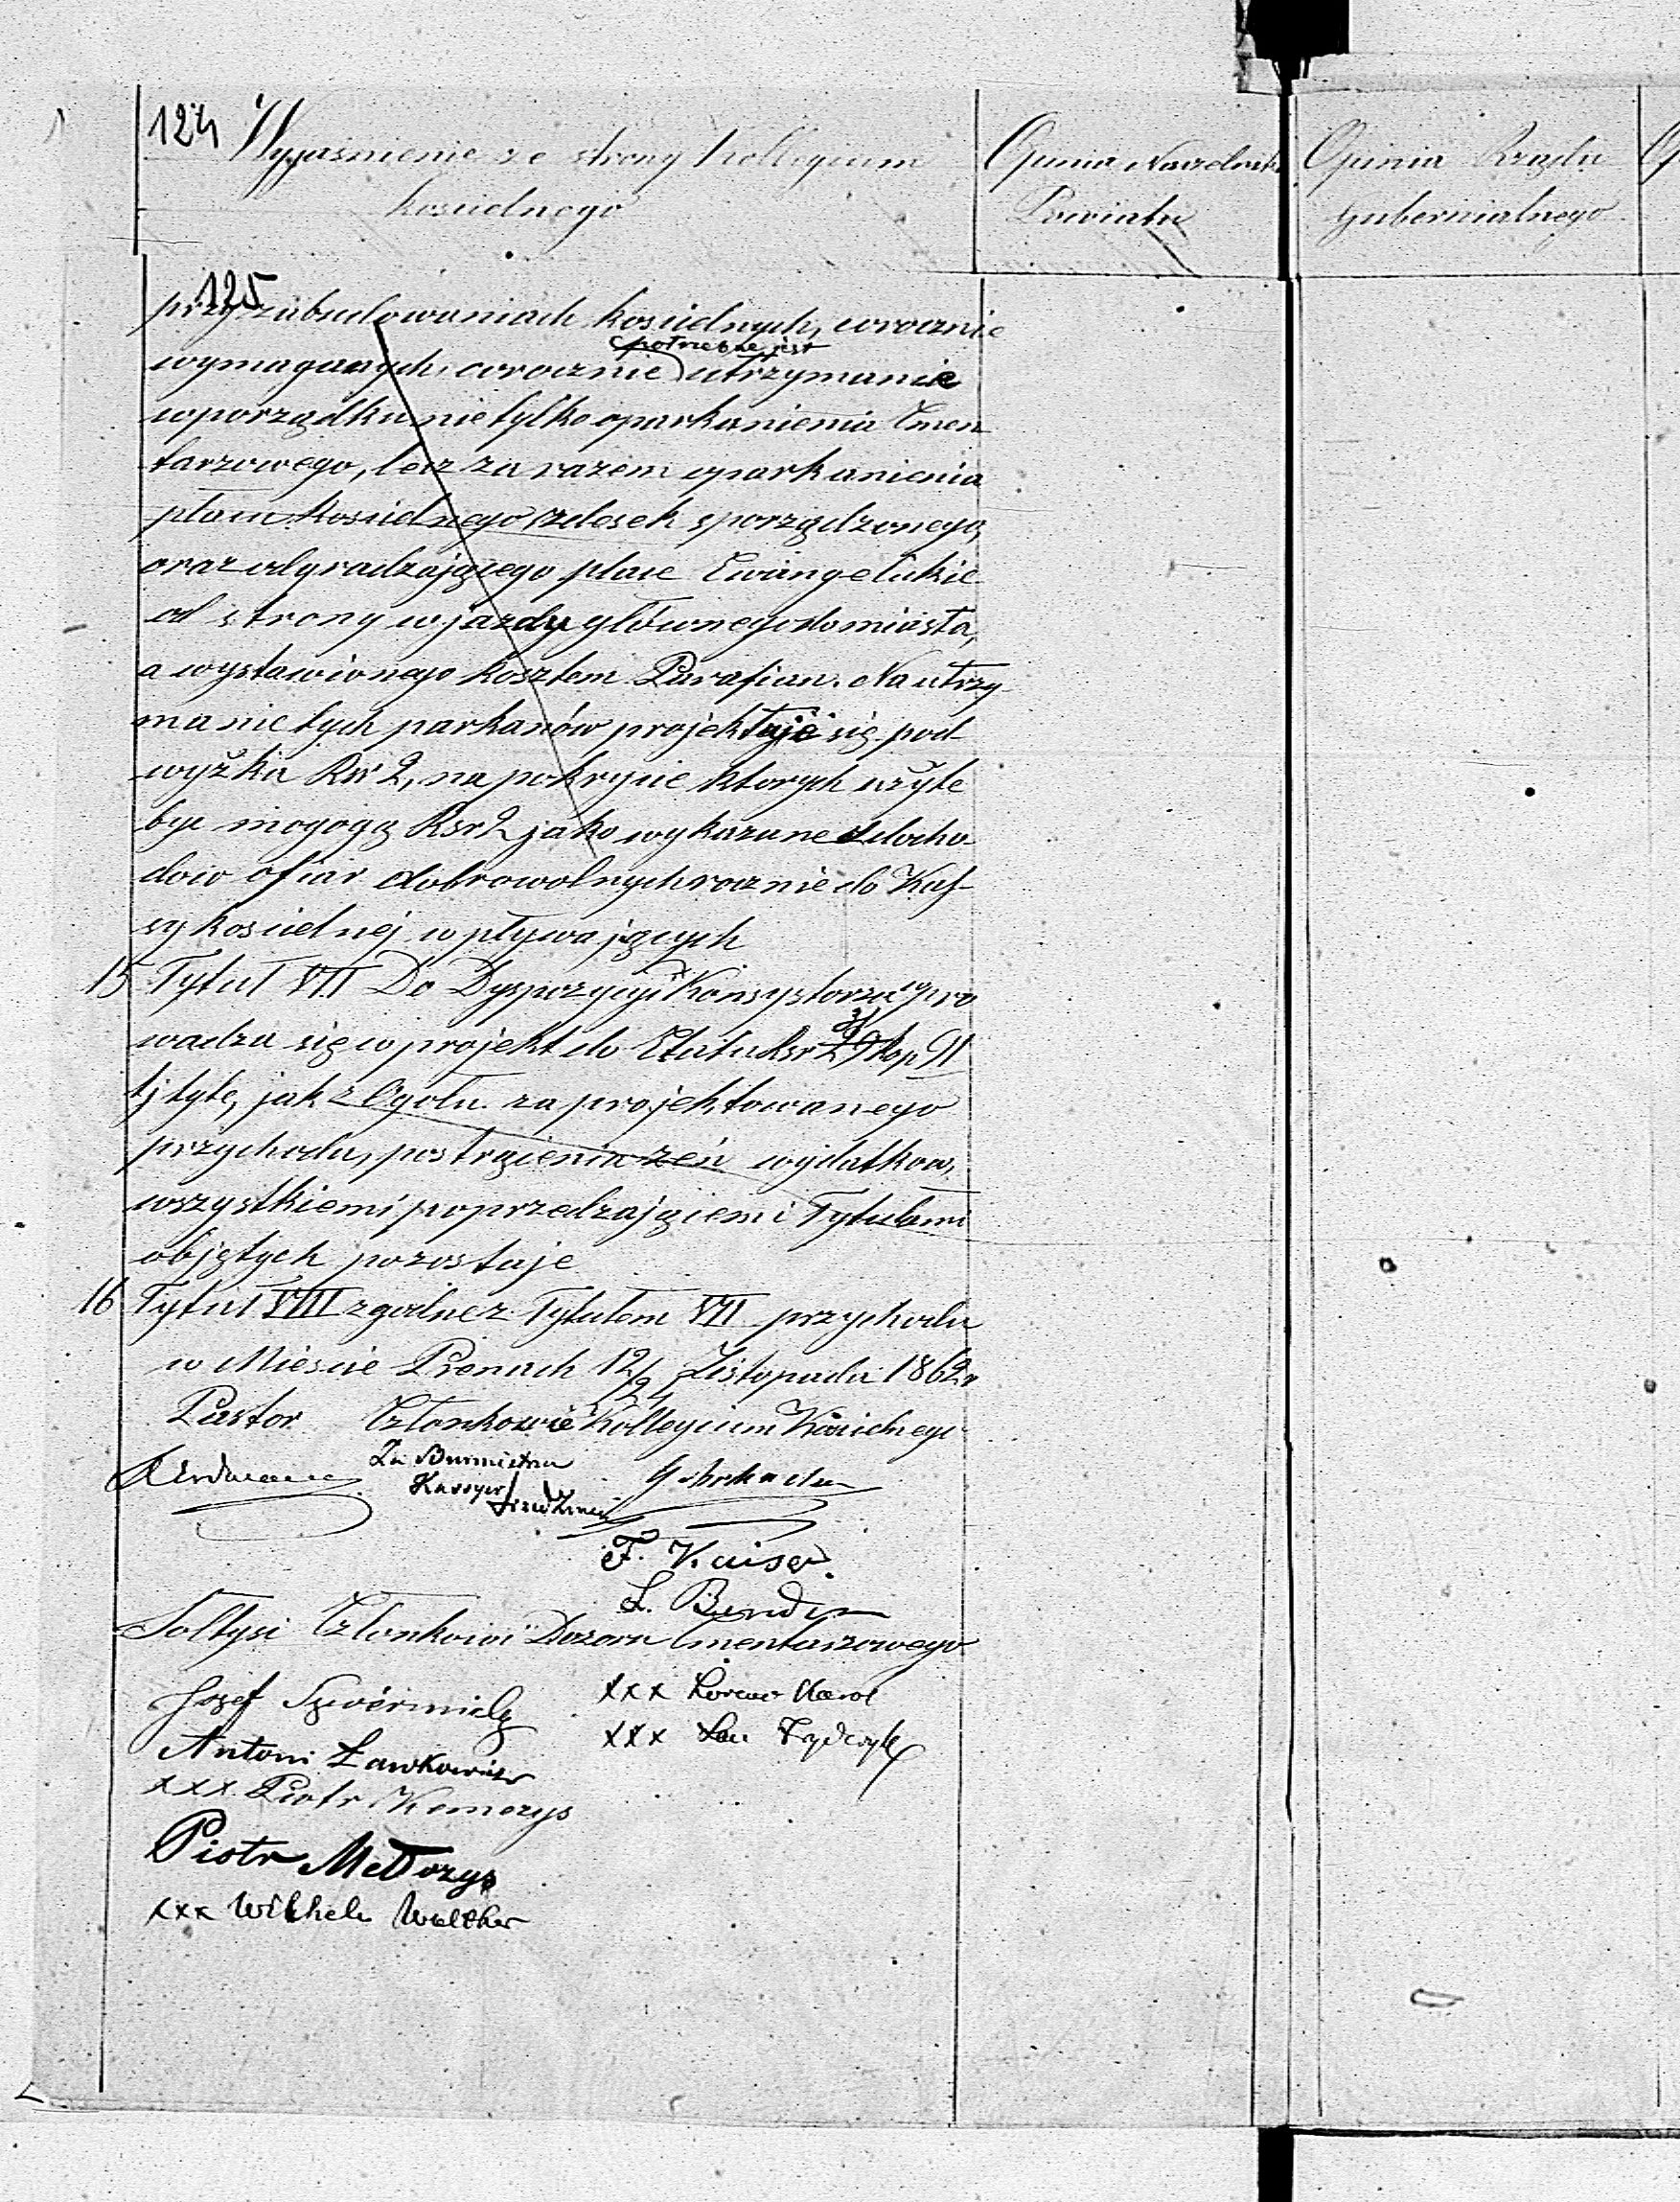 124 Wyjasnienie ze strony Kollegium
kościelnego
Opinia Naczelnika
Powiatu
Opinia Rządu
Gubernialnego
125
przy zabudowaniach kościelnych, corocznie
potrzebne jest
wymaganych, corocznie utrzymanie
w porządku nie tylko oparkanienia Cmen
tarzowego, lecz za razem oparkanienia
placu kościelnego z desek sporządzonego,
oraz odgradzającego place Ewangelickie
od strony wjazdu głównego do miasta,
a wystawionego kosztem Parafian. Na utrzy
manie tych parkanów projektuje się pod
wyżka Rsr 2, na pokrycie ktorych użyte
byc mogogą Rsr 2 jako wykazane z docho-
dow ofiar dobrowolnych rocznie do Kas-
sy kościelnéj wpływających
15 Tytuł VII Do Dyspozycyi Konsystorza pro
wadza się w projekt do Etatu Rsr 29 kop 91
tj tyle, jak z Ogołu zaprojektowanego
przychodu, postrącenia zeń wydatkow,
wszystkiemi poprzedzającemi Tytułami
objętych pozostaje
16 Tytuł VIII zgodnie z Tytułem VII przychodu
w Mieście Prenach 12/24 Listopada 1862 r
Pastor Członkowie Kollegium Kościelnego
Za Burmistrza
Kassyer
F. Kaiser.
Sołtysi Członkowie Dozoru Cmentarzowego
Józef
xxx Karol
Antoni Ławkowicz
xxx
xxx Piotr Kemezys
Piotr Mełdozys
xxx Wilhelm Walther